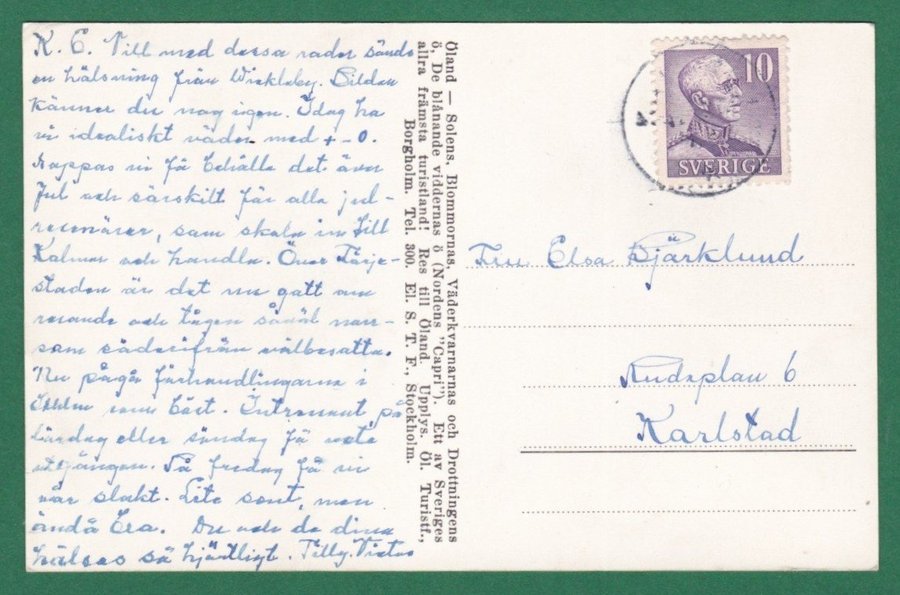 K. E. Vill med dessa rader sända
en hälsning från Vickleby. Bilden
känner du nog igen. Idag ha
vi idealiskt väder med + - 0.
Hoppas vi få behålla det över
Jul och särskilt för alla jul-
resenärer, som skola in till
Kalmar och handla. Över Färje-
staden är det nu gott om
resande och tågen såväl norr-
som söderifrån välbesatta.
Nu pågå förhandlingarna i
Sthlm som bäst. Intressant på
lördag eller söndag få veta
utgången. På fredag få vi
vår slakt. Lite sent, men
ändå bra. Du och de dina
hälsas så hjärtligt. Tilly. Victor
Öland — Solens, Blommornas, Väderkvarnarnas och Drottningens
ö, De blånande viddernas ö (Nordens "Capri"). Ett av Sveriges
allra främsta turistland! Res till Öland. Upplys. Öl. Turistf.,
Borgholm. Tel. 300. El. S. T. F., Stockholm.
10
SVERIGE
Fru Elsa Björklund
6
Karlstad